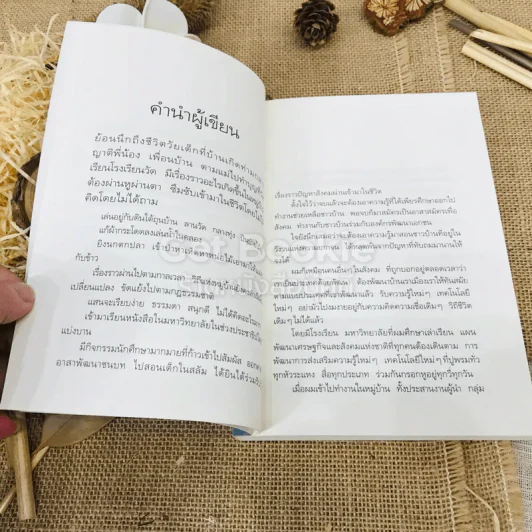 คำนำผู้เขียน
ย้อนนึกถึงชีวิตวัยเด็กที่บ้านเกิดท่ามกลาง
ญาติพี่น้อง เพื่อนบ้าน ตามแม่ไปทำบุญที่
เรียนโรงเรียนวัด มีเรื่องราวอะไรเกิดขึ้นในหมู่บ้าน
ต้องผ่านหูผ่านตา ซึมซับเข้ามาในชีวิตโดยไม่
คิดโดยไม่ได้ถาม
เล่นอยู่กับดินใต้ถุนบ้าน ลานวัด กลางทุ่ง
แก้ผ้ากระโดดลงเล่นน้ำในคลอง
ยิงนกตกปลา เข้าป่าหาเห็ดหาหน่อไม้เอามา
กับข้าว
เรื่องราวผ่านไปตามกาลเวลา วิถีของหมู่บ้าน
เปลี่ยนแปลง ขัดแย้งไปตามกฎธรรมชาติ
แสนจะเรียบง่าย ธรรมดา สนุกดี ไม่ได้คิดอะไร
เข้ามาเรียนหนังสือในมหาวิทยาลัยในช่วงประชาธิปไตย
แบ่งบาน
มีกิจกรรมนักศึกษามากมายที่ก้าวเข้าไปสัมผัส ออกค่าย
อาสาพัฒนาชนบท ไปสอนเด็กในสลัม ได้ยินได้ร่วมรับ
เรื่องราวปัญหาสังคมผ่านเข้ามาในชีวิต
ตั้งใจไว้ว่าจบแล้วจะต้องเอาความรู้ที่ได้เพียรศึกษาออกไป
ทำงานช่วยเหลือชาวบ้าน พอจบก็มาสมัครเป็นอาสาสมัครเพื่อ
สังคม ทำงานกับชาวบ้านร่วมกับองค์กรพัฒนาเอกชน
ใจยังนึกเสมอว่าจะต้องเอาความรู้มาสอนชาวบ้านที่อยู่ใน
ได้หลุดพ้นจากปัญหาที่ทับถมมานานให้
ผมก็เหมือนคนอื่นๆ ในสังคม ที่ถูกบอกอยู่ตลอดเวลาว่า
รับความรู้ใหม่ๆ เทคโนโลยี
ใหม่ๆ อย่ามัวไปงมงายอยู่กับความเชื่อเดิมๆ วิถีชีวิต
เดิมๆ ไม่ได้แล้ว
โดยมีโรงเรียน มหาวิทยาลัยที่ผมศึกษาเล่าเรียน แผน
พัฒนาเศรษฐกิจและสังคมแห่งชาติที่ทุกคนต้องเดินตาม การ
พัฒนาการส่งเสริมความรู้ใหม่ๆ เทคโนโลยีใหม่ๆ ที่ปูพรมทั่ว
ทุกหัวระแหง สื่อทุกประเภท ร่วมกันกรอกหูอยู่ทุกวี่ทุกวัน
เมื่อผมเข้าไปทำงานในหมู่บ้าน ทั้งประสานงานผู้นำ กลุ่ม
Get Bookie